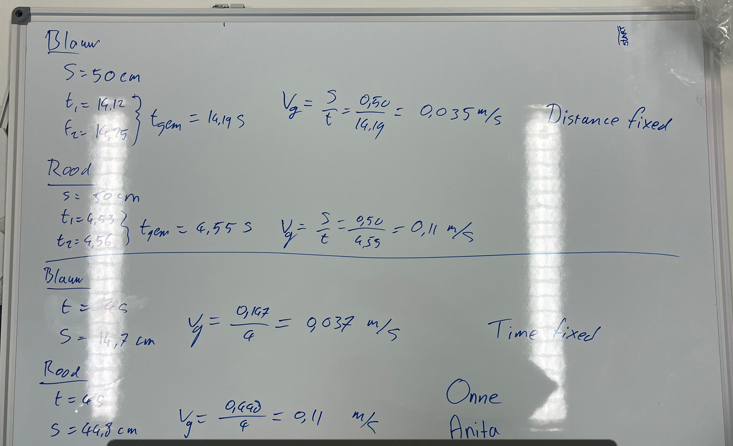 Blauw
S = 50 cm
t₁ = 14,12
t₂ = 14,25 } tgem = 14,19 s
Vg = S/t = 0,50/14,19 = 0,035 m/s
Distance fixed
Rood
s = 50 cm
t₁ = 4,53
t₂ = 4,56 } tgem = 4,55 s
Vg = S/t = 0,50/4,55 = 0,11 m/s
Blauw
t = 4 s
S = 14,7 cm
Vg = 0,147/4 = 0,037 m/s
Time fixed
Rood
t = 4 s
S = 44,8 cm
Vg = 0,448/4 = 0,11 m/s
Onne
Anita